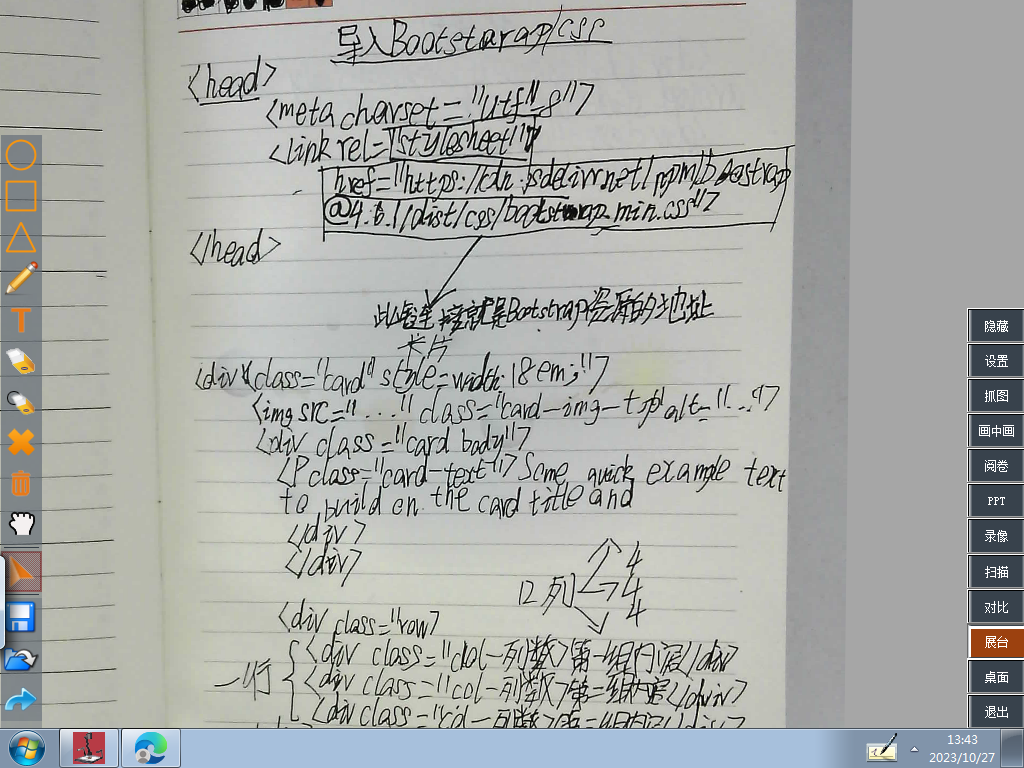 导入Bootstarap/css
<head>
<meta charset="utf"-8">
<link rel="stylesheet"
href="https://cdn.jsdelivr.net/npm/bootstrap
@4.6.1/dist/css/bootstrap.min.css">
</head>
此链接就是Bootstrap资源的地址
卡片
<div class="card" style=width:18em;">
<img src="..." class="card-img-top" alt="...">
<div class="card body">
<P class="card-text"> Some quick example text
to build on the card title and
</div>
</div>
12列
4
4
4
<div class="row>
一行
<div class="col-列数>第一组内容</div>
<div class="col-列数>第二组内容</div>
<div class="col-列数>第三组内容</div>
T
隐藏
设置
抓图
画中画
阅卷
PPT
录像
扫描
对比
展台
桌面
退出
13:43
2023/10/27